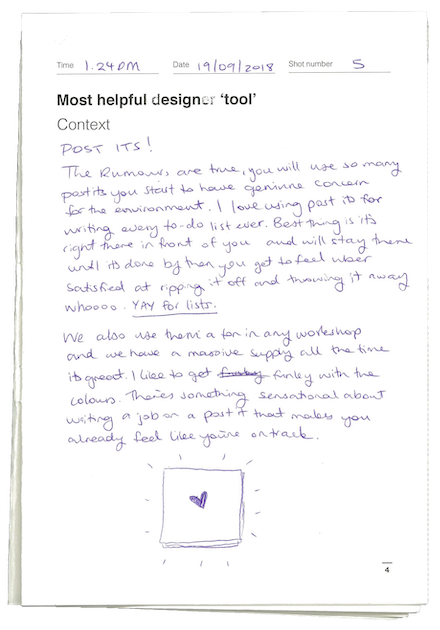 Time 1.24pm Date 19/09/2018 Shot number 5
Most helpful designer 'tool'
Context
POST ITS!
The Rumours are true, you will use so many
postits you start to have geniune concern
for the environment. I love using post its for
writing every to-do list ever. Best thing is it's
right there in front of you and will stay there
until its done by then you get to feel uber
satisfied at ripping it off and throwing it away
whoooo. YAY for lists.
We also use them a ton in any workshop
and we have a massive supply all the time
its great. I like to get funky with the
colours. Theres something sensational about
writing a job on a post it that makes you
already feel like you're on track.
4